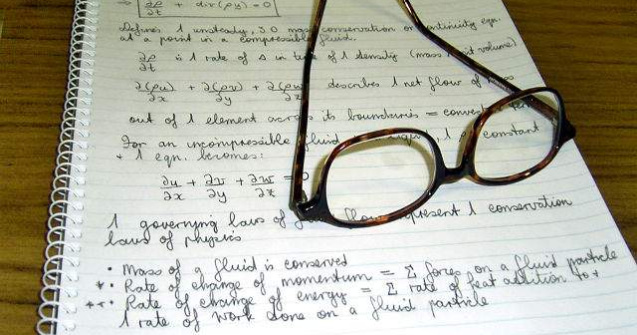 → ∂ρ/∂t + div(ρu) = 0
Defines 1 unsteady, 3D mass conservation or continuity eqn.
at a point in a compressible fluid.
∂ρ/∂t is 1 rate of Δ in time of 1 density (mass / unit volume)
∂(ρu)/∂x + ∂(ρv)/∂y + ∂(ρw)/∂z describes 1 net flow of mass
out of 1 element across its boundaries = term
For an incompressible fluid 1 ρ constant
+ 1 eqn. becomes:
∂u/∂x + ∂v/∂y + ∂w/∂z = 0
1 governing laws of flow represent 1 conservation
laws of physics
• Mass of a fluid is conserved
*• Rate of change of momentum = Σ forces on a fluid particle
**• Rate of change of energy = Σ rate of heat addition to +
1 rate of work done on a fluid particle